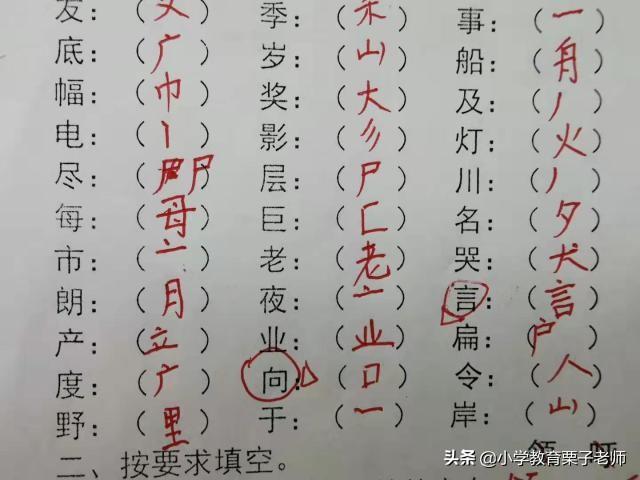 发：（又） 季：（禾） 事：（一）
底：（广） 岁：（山） 船：（舟）
幅：（巾） 奖：（大） 及：（丿）
电：（丨） 影：（彡） 灯：（火）
尽：（尸） 层：（尸） 川：（丿）
每：（母） 巨：（匚） 名：（夕）
市：（亠） 老：（老） 哭：（犬）
朗：（月） 夜：（亠） 言：（言）
产：（立） 业：（业） 扁：（户）
度：（广） 向：（口） 令：（人）
野：（里） 于：（一） 岸：（山）
二、按要求填空。
头条 @小学教育栗子老师